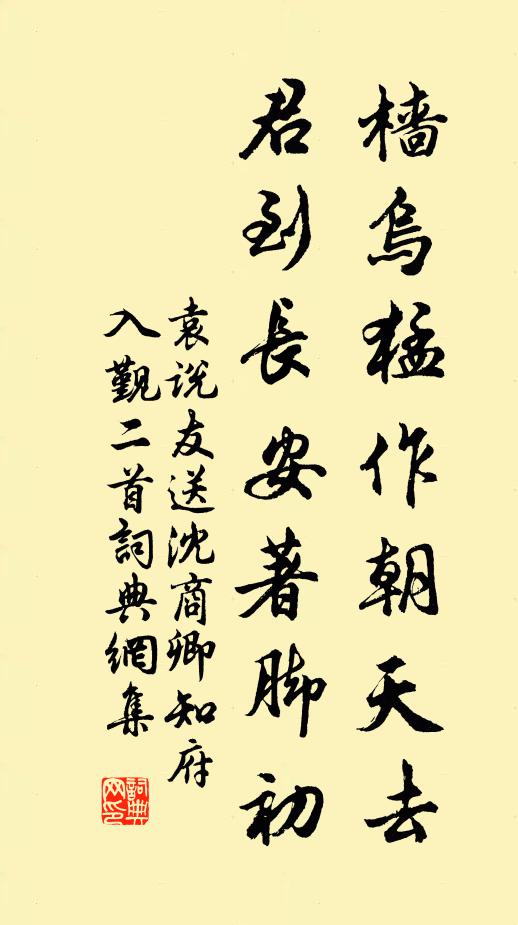 檣烏猛作朝天去
君到長安著脚初
袁説友送沈商卿知府
入覲二首詞典網集
詞典
网印